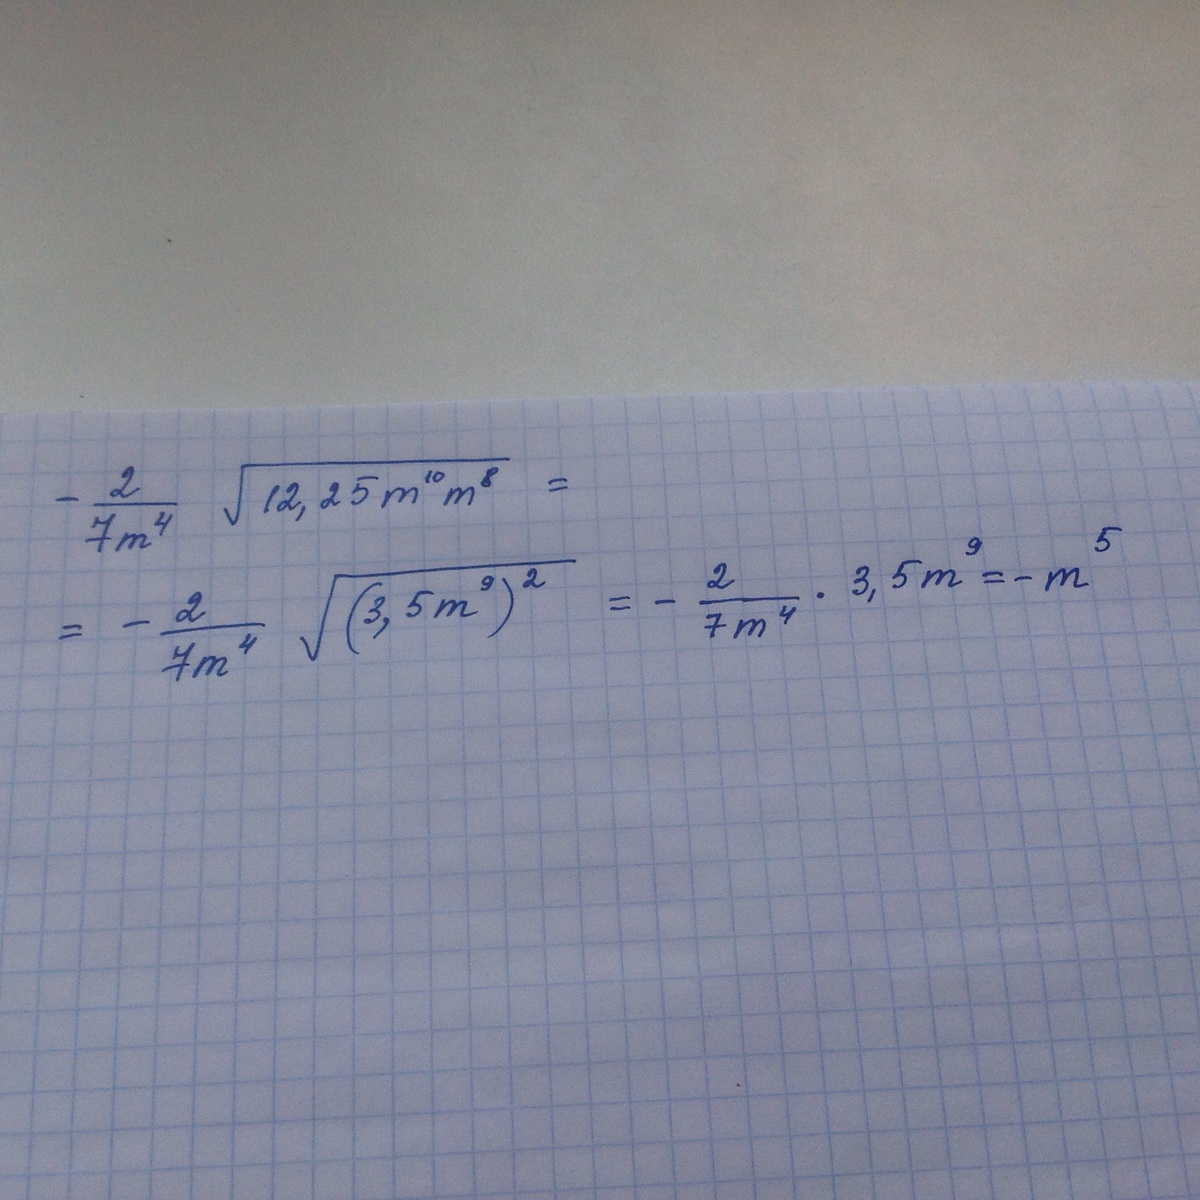 - 2/(7m⁴) √(12,25m¹⁰m⁸) =
= - 2/(7m⁴) √((3,5m⁹)²) = - 2/(7m⁴) · 3,5m⁹ = - m⁵